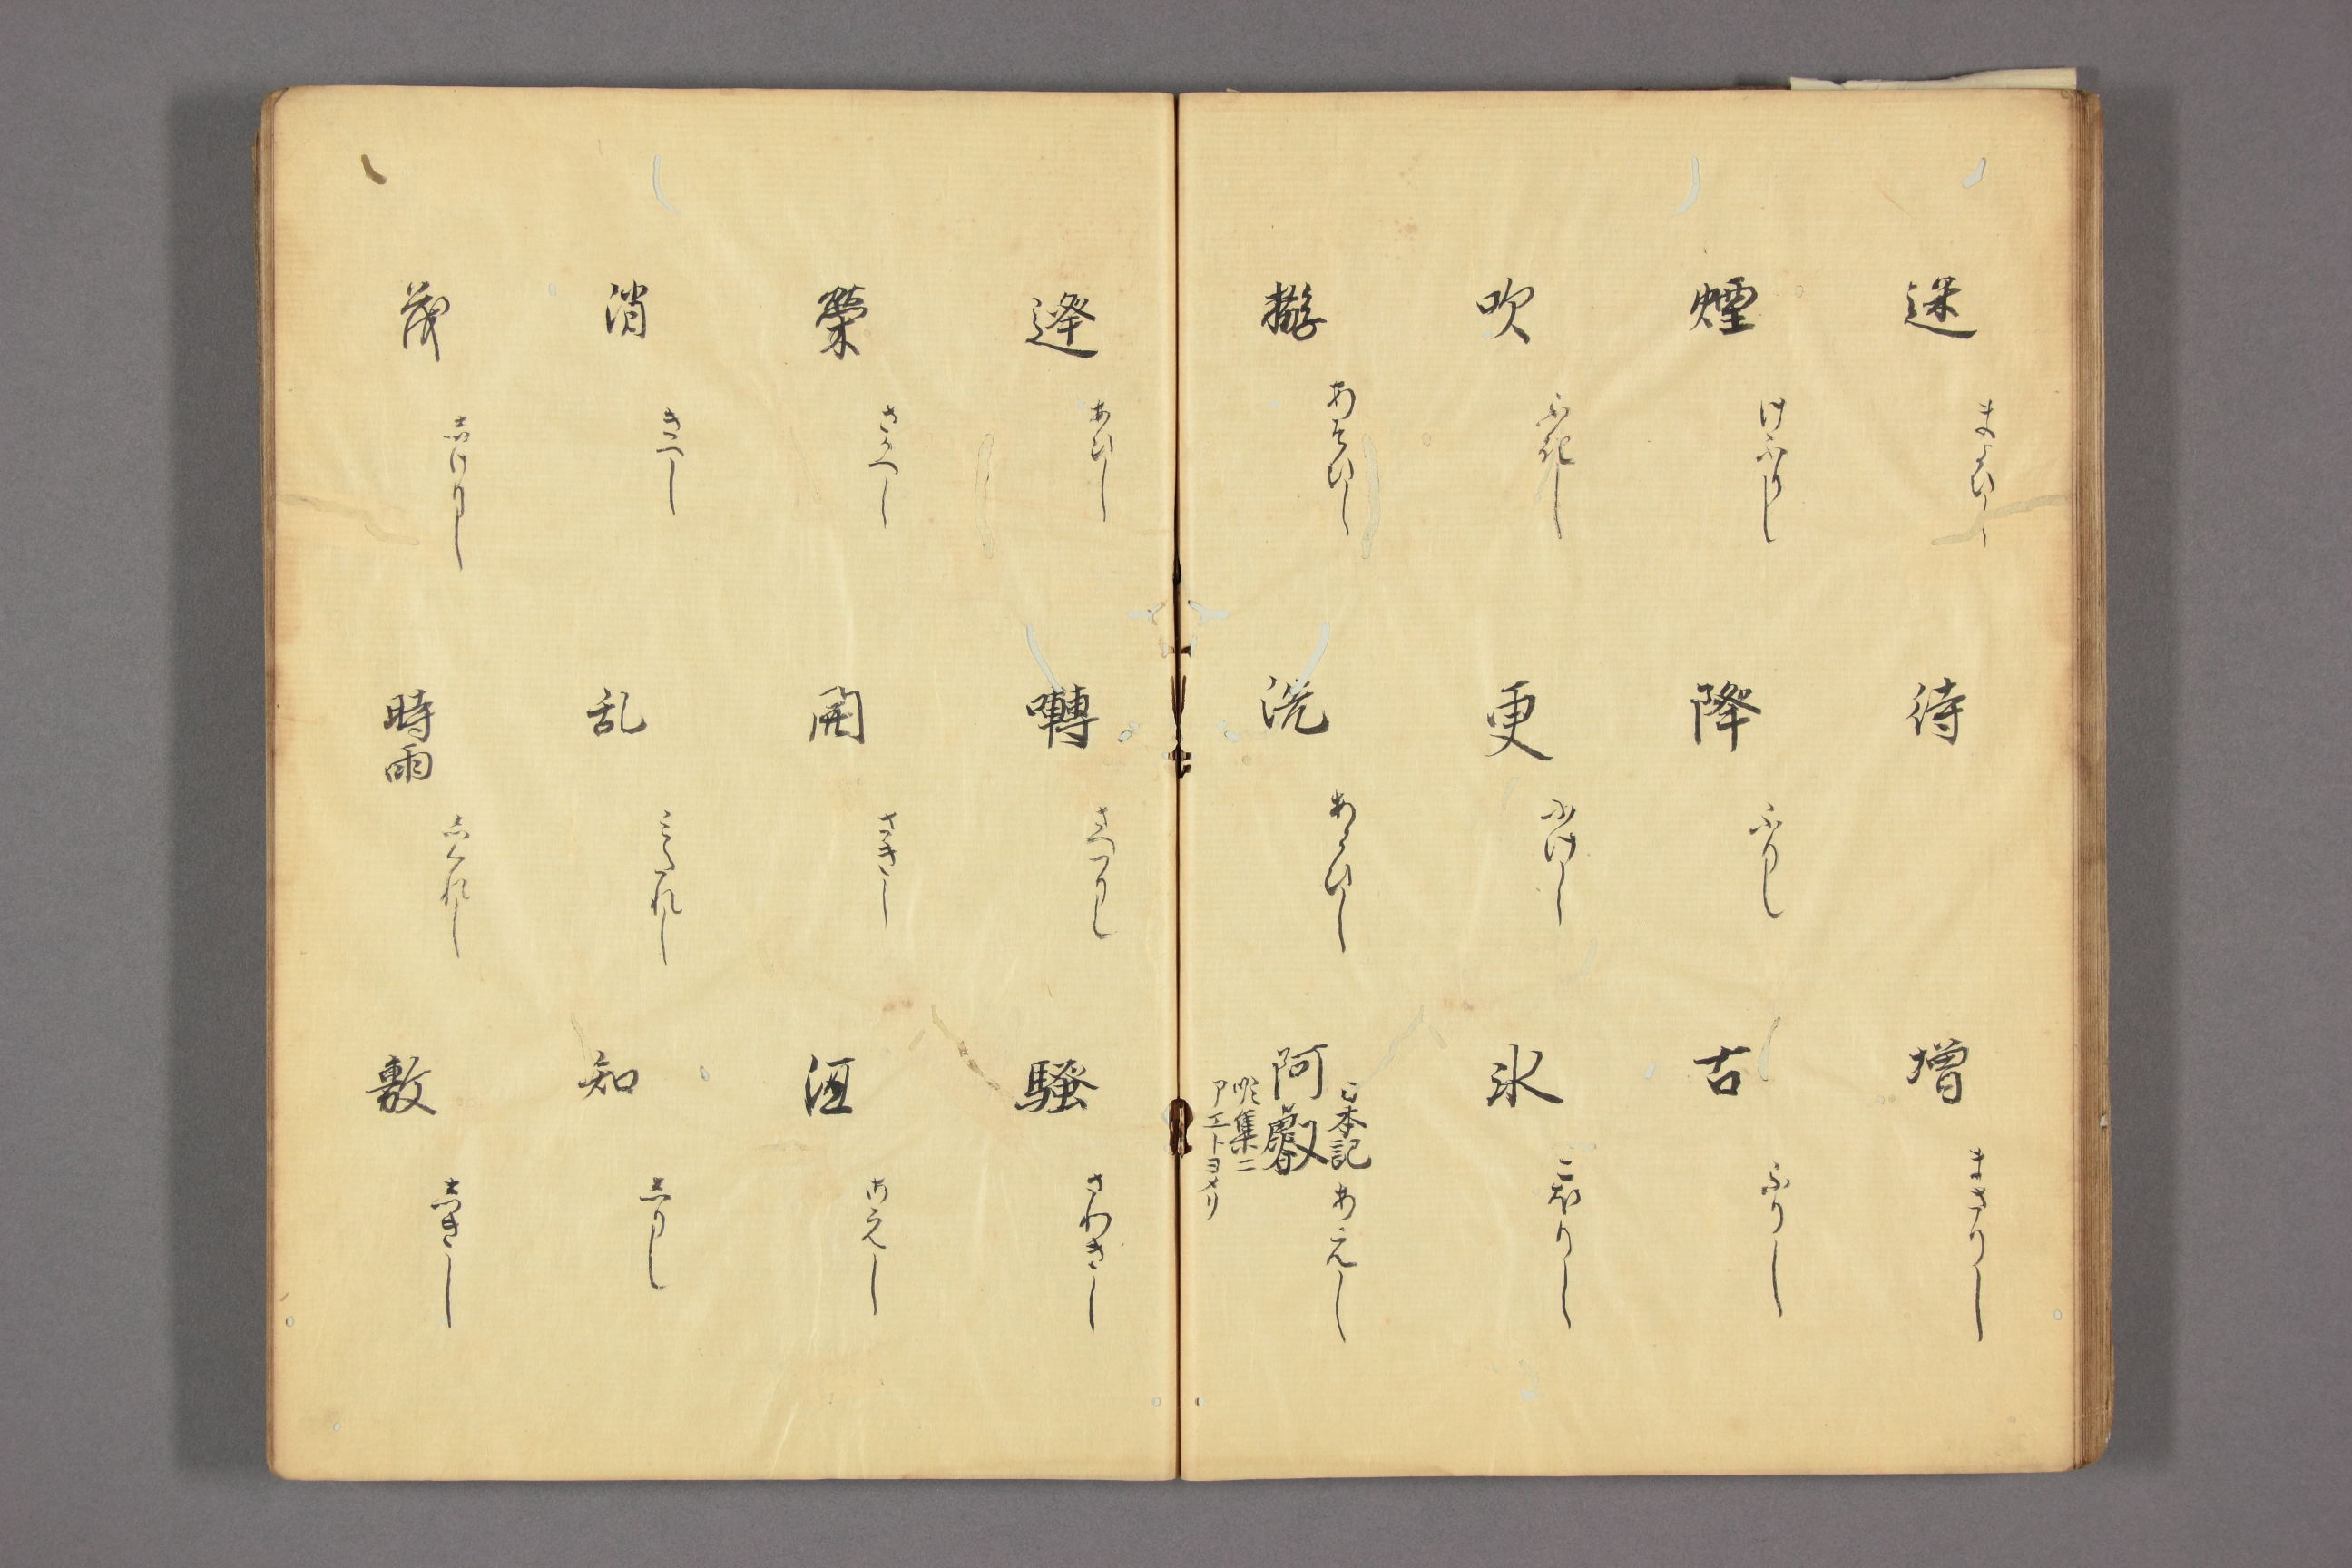 迷 まよひし
待
増 まさりし
煙 けふりし
降 ふりし
古 ふりし
吹 ふきし
更 ふけし
氷 こほりし
あそひし
洗 あらひし
阿叡 日本記 あえし
集ニ
アエトヨメリ
逢 あひし
囀 さへつりし
騒 さわきし
榮 さかへし
開 さきし
えし
消 きへし
乱 みたれし
知 しりし
茂 しけりし
時雨 しくれし
敷 しきし